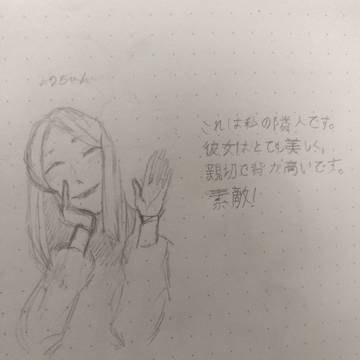 これは私の隣人です。
彼女はとても美しく、
親切で背が高いです。
素敵!